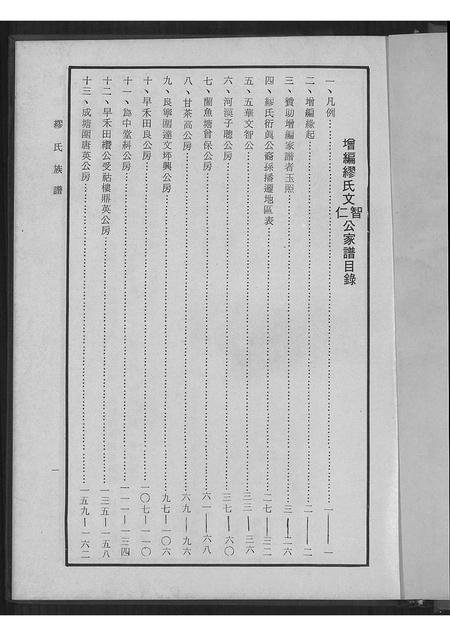 增編繆氏文智仁公家譜目錄
一、凡例⋯⋯一—一
二、增編緣起⋯⋯二—二
三、贊助增編家譜者玉照⋯⋯三—二六
四、繆氏衍眞公裔孫播遷地區表⋯⋯二七—三二
五、五華文智公⋯⋯三三—三六
六、河源子聰公房⋯⋯三七—六〇
七、蘭魚塘曾保公房⋯⋯六一—六八
八、甘茶高公房⋯⋯六九—九六
九、良寧圍達文坜興公房⋯⋯九七—一〇六
十、旱禾田良公房⋯⋯一〇七—一一〇
十一、為中堂科公房⋯⋯一一一—一三四
十二、旱禾田纘公受祜樓鼎英公房⋯⋯一三五—一五八
十三、成塘圍唐英公房⋯⋯一五九—一六二
繆氏族譜
一